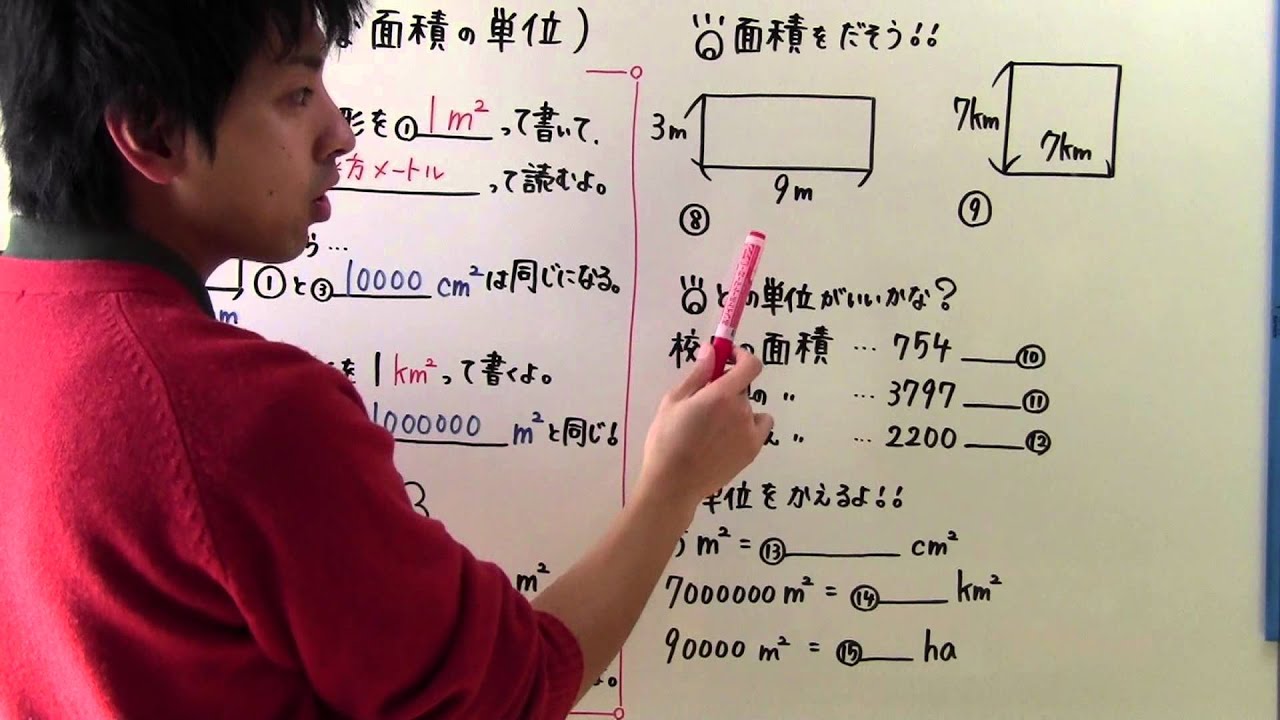 な面積の単位)
形を①1m²って書いて、
方メートルって読むよ。
ら…
①と③10000cm²は同じになる。
m
を1km²って書くよ。
1000000m²と同じ!
m²
。
面積をだそう!!
3m
9m
⑧
7km
7km
⑨
どの単位がいいかな?
校 の面積 … 754 ⑩
の 〃 … 3797 ⑪
〃 … 2200 ⑫
単位をかえるよ!!
m² = ⑬ cm²
7000000m² = ⑭ km²
90000 m² = ⑮ ha